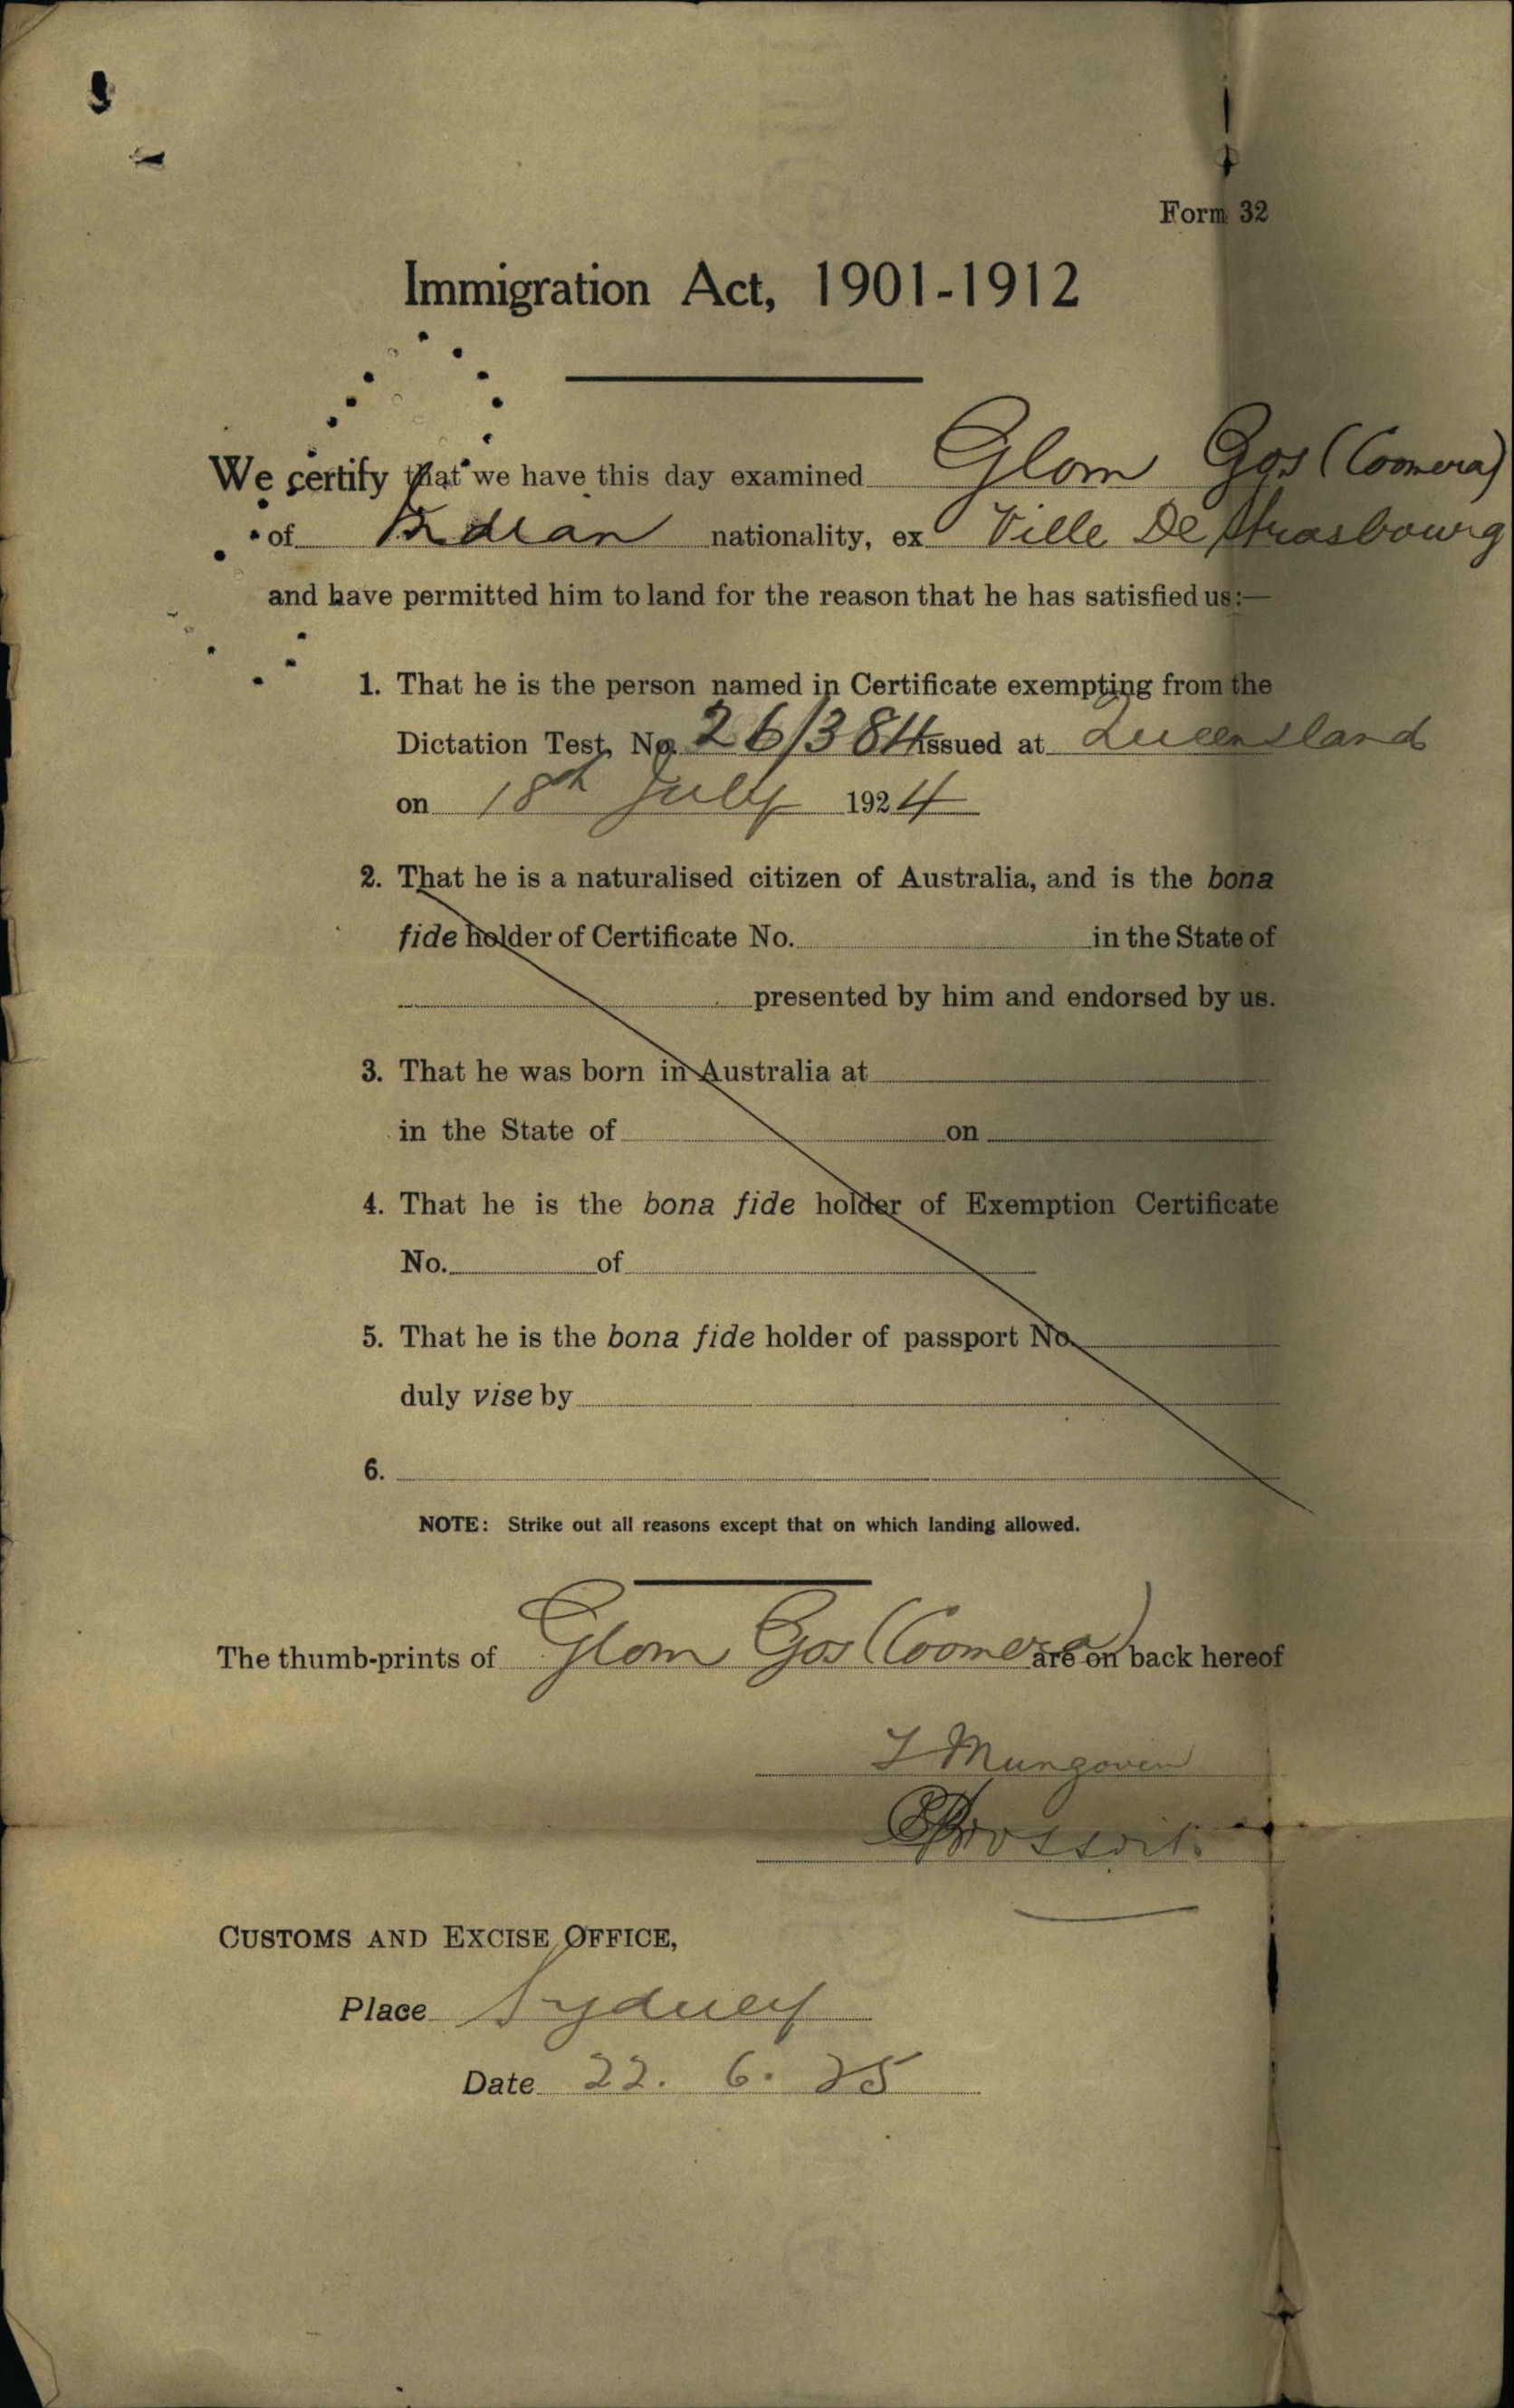 Form 32
Immigration Act, 1901-1912
We certify that we have this day examined Glom Gos (Coomera)
of Indian nationality, ex Ville De Strasbourg
and have permitted him to land for the reason that he has satisfied us:—
1. That he is the person named in Certificate exempting from the
Dictation Test, No. 26/384 issued at Queensland
on 18th July 1924
2. That he is a naturalised citizen of Australia, and is the bona
fide holder of Certificate No. in the State of
presented by him and endorsed by us.
3. That he was born in Australia at
in the State of on
4. That he is the bona fide holder of Exemption Certificate
No. of
5. That he is the bona fide holder of passport No.
duly vise by
6.
NOTE: Strike out all reasons except that on which landing allowed.
The thumb-prints of Glom Gos (Coomera) are on back hereof
J Mungoven
CUSTOMS AND EXCISE OFFICE,
Place Sydney
Date 22. 6. 25